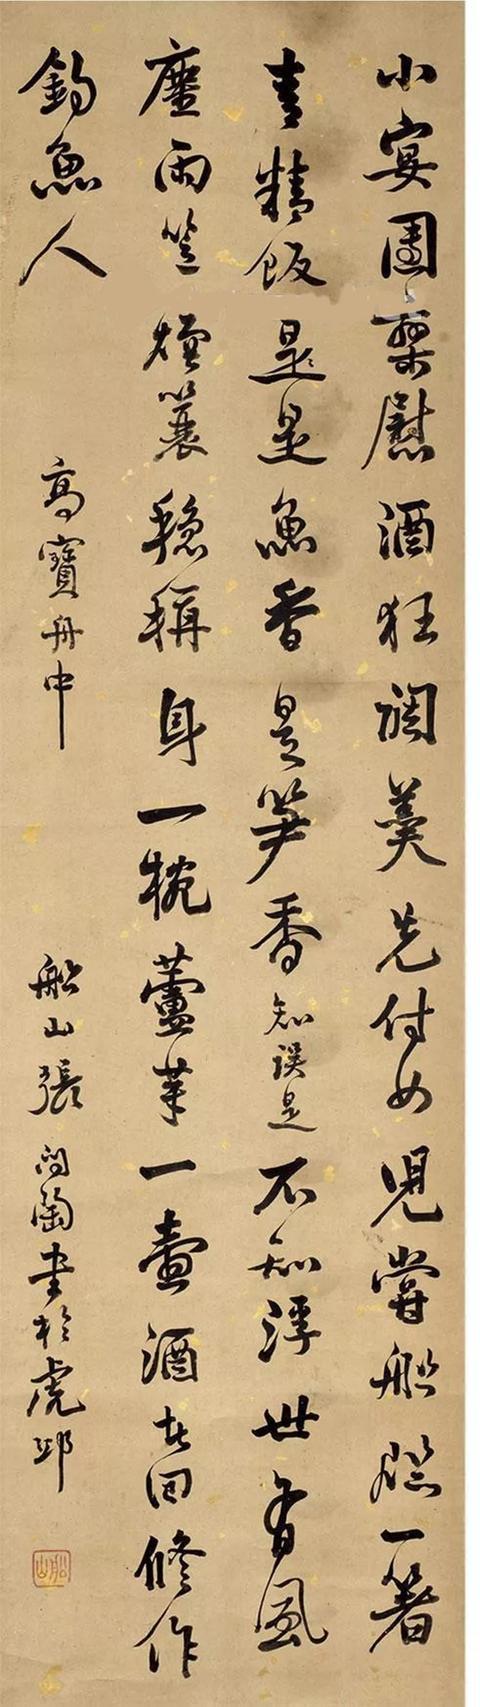 小宴團欒慰酒狂調羹先付女兒嘗船脣一箸
青精飯是是魚香是筍香知誤是不知浮世有風
塵雨笠煙蓑穩稱身一椀蘆芽一壺酒去回修作
釣魚人
高寶舟中
船山張問陶書於虎邱
船山